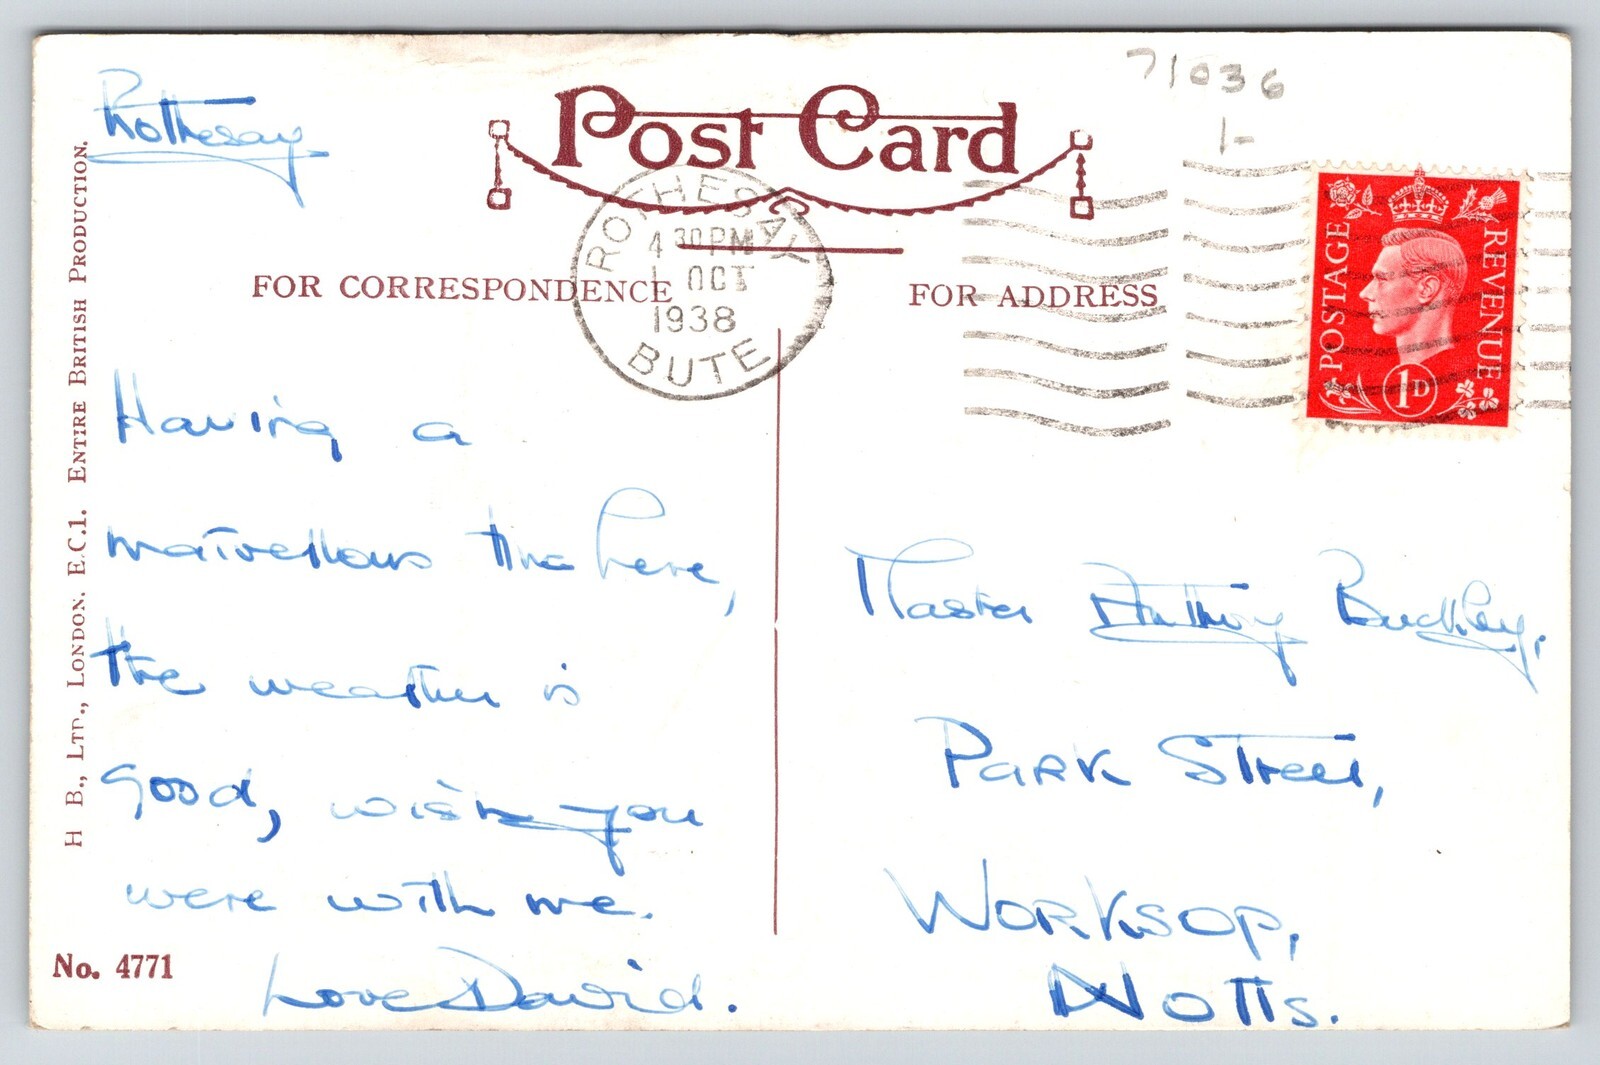 71036
1-
Post Card
Rothesay
ROTHESAY
4 30 PM
1 OCT
1938
BUTE
POSTAGE
REVENUE
1D
FOR CORRESPONDENCE
FOR ADDRESS
H B., LTD., LONDON. E.C.1. ENTIRE BRITISH PRODUCTION.
Having a
marvellous time here,
the weather is
good, wish you
were with me.
Love David.
No. 4771
Master Anthony Buckley,
Park Street,
Worksop,
Notts.